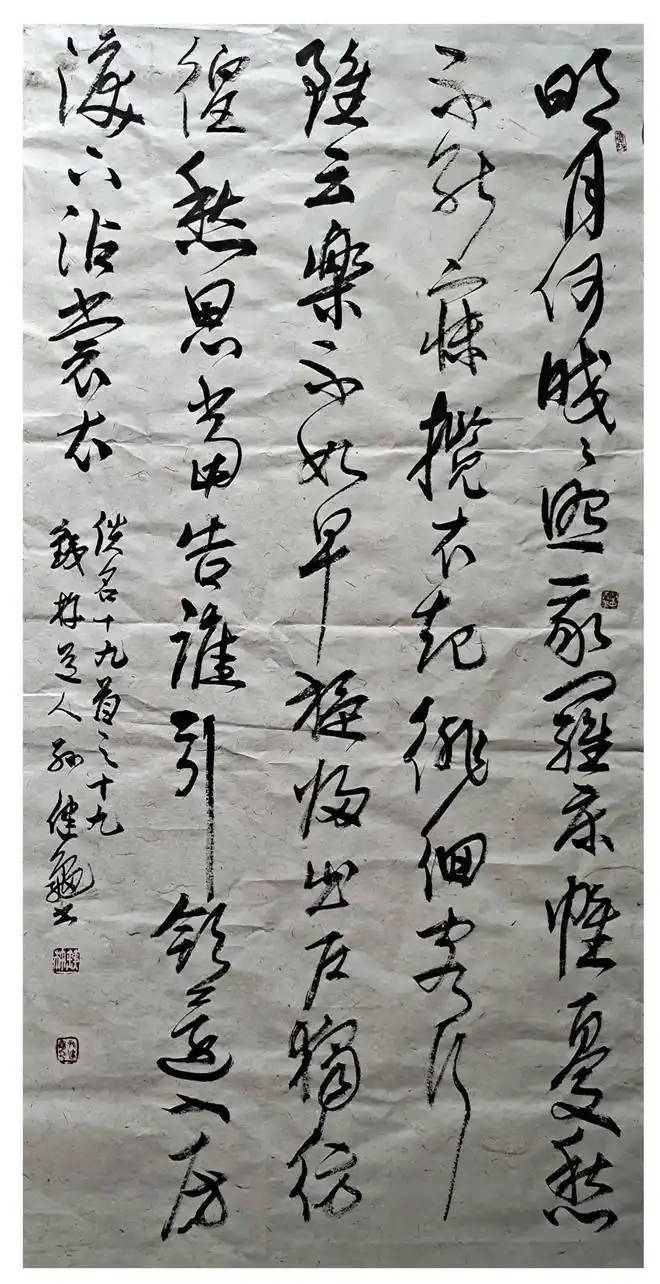 明月何皎々照我羅床幃憂愁
不能寐攬衣起徘徊客行
雖云樂不如早旋歸出戶獨仿
徨愁思當告誰引領還入房
淚下沾裳衣
佚名十九首之十九
道人孫健書